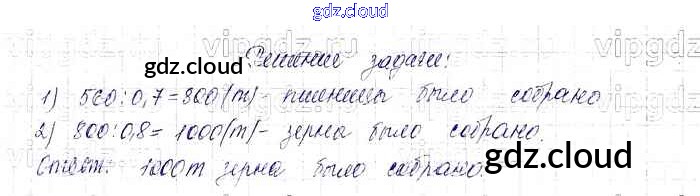 gdz.cloud
Решение задачи:
gdz.cloud
1) 560:0,7=800(т)- пшеницы было собрано
2) 800:0,8=1000(т)- зерна было собрано.
Ответ: 1000т зерна было собрано.
gdz.cloud